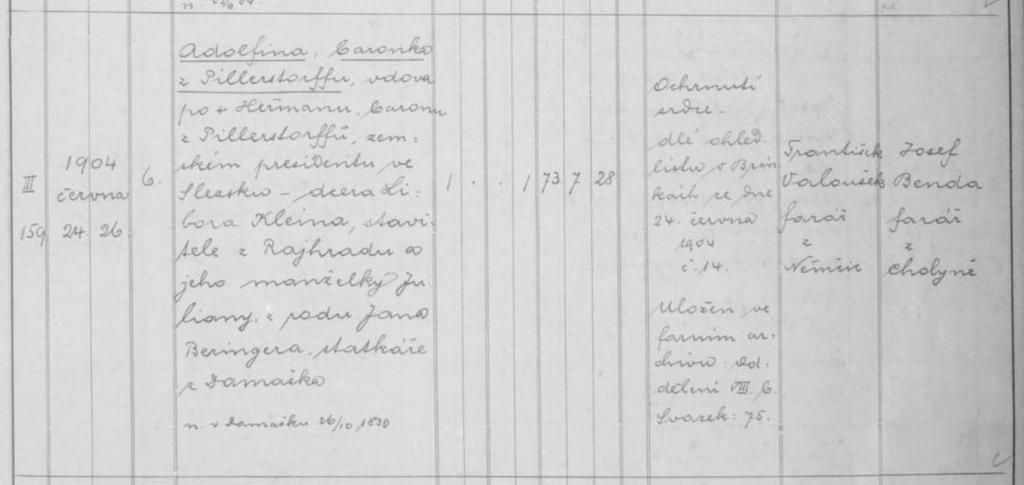 III
159
1904
června
24. 26.
6.
Adolfina, Baronka
z Pillerstorffu, vdova
po + Heřmanu, Baronu
z Pillerstorffů, zem-
ském presidentu ve
Slezsku - dcera Li-
bora Kleina, stavi-
tele z Rajhradu a
jeho manželky Ju-
liany, z rodu Jana
Beringera, statkáře
z Damaška
n. v Damašku 26/10 1830
1 . . 1 73 7 28
Ochrnutí
srdce.
dlé ohled.
listu v Brán-
kách ze dne
24. června
1904
č. 14.
Uložen: ve
farním ar-
chivu od-
dělení VIII. 6.
Svazek: 75.
František
Valoušek
farář
z
Němčic
Josef
Benda
farář
z
Cholyně